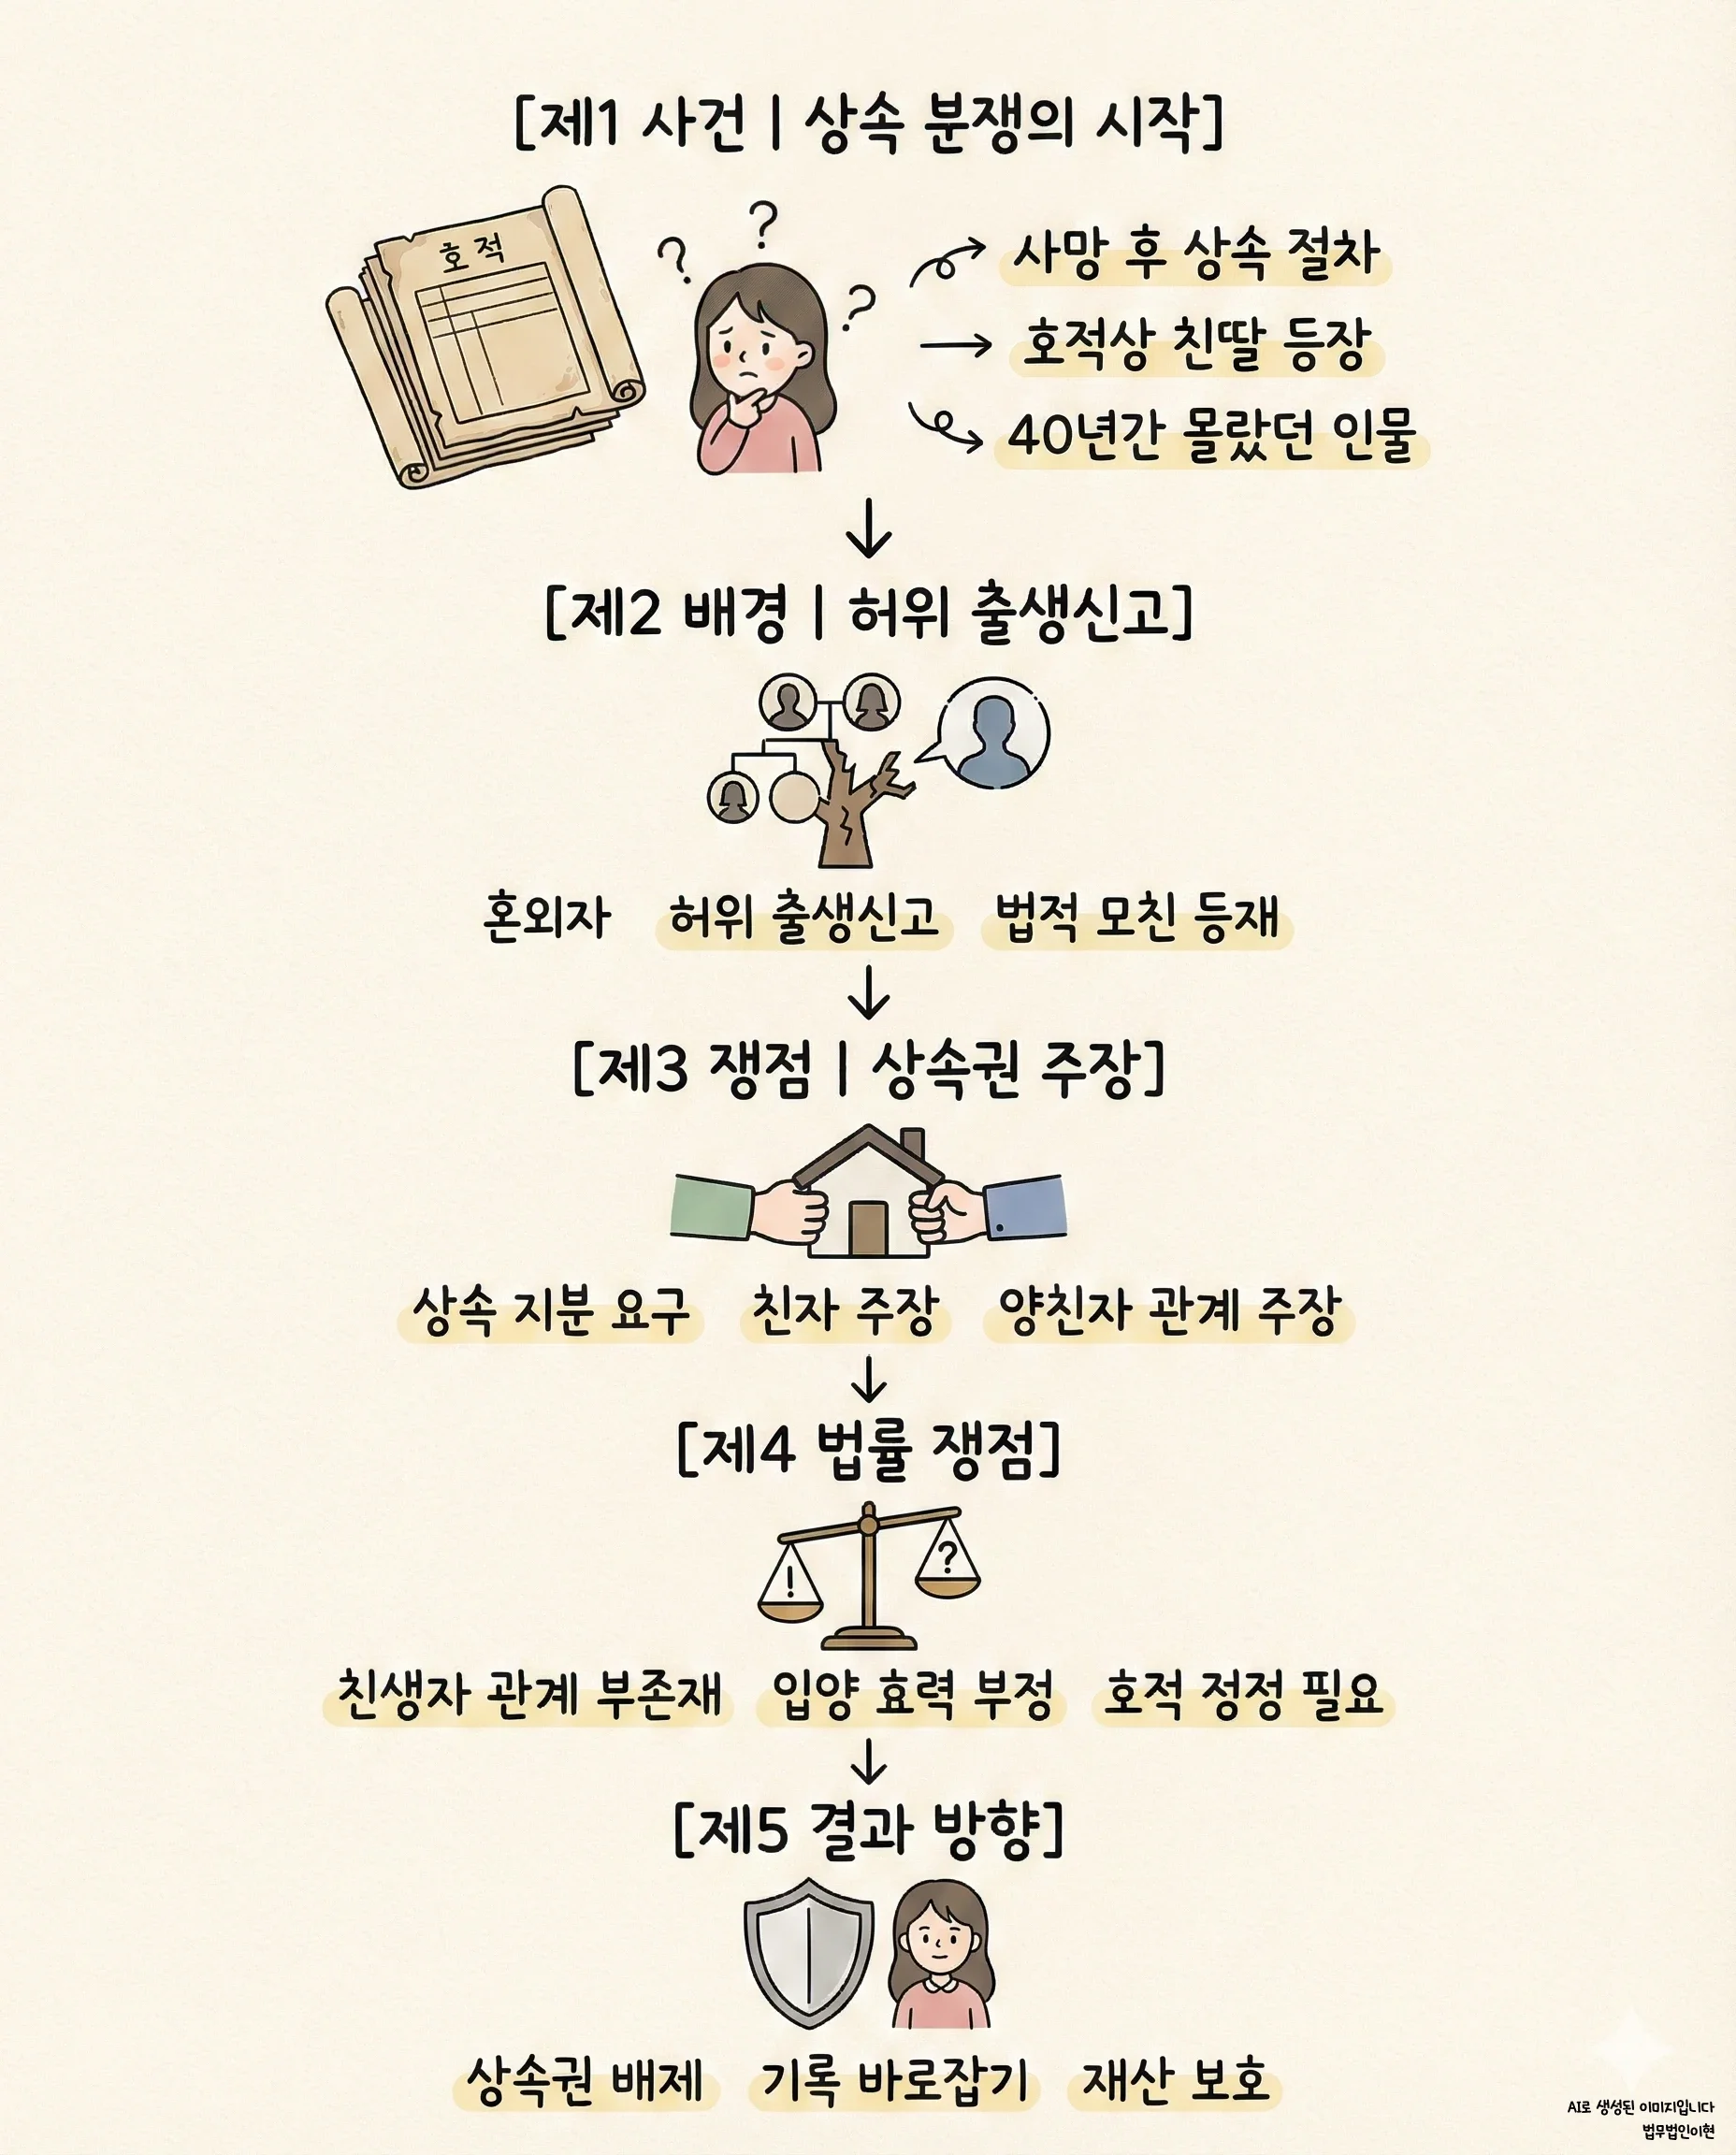 [제1 사건 | 상속 분쟁의 시작]
호적
? ? ?
사망 후 상속 절차
호적상 친딸 등장
40년간 몰랐던 인물
[제2 배경 | 허위 출생신고]
혼외자 허위 출생신고 법적 모친 등재
[제3 쟁점 | 상속권 주장]
상속 지분 요구 친자 주장 양친자 관계 주장
[제4 법률 쟁점]
! ?
친생자 관계 부존재 입양 효력 부정 호적 정정 필요
[제5 결과 방향]
상속권 배제 기록 바로잡기 재산 보호
AI로 생성된 이미지입니다
법무법인이현